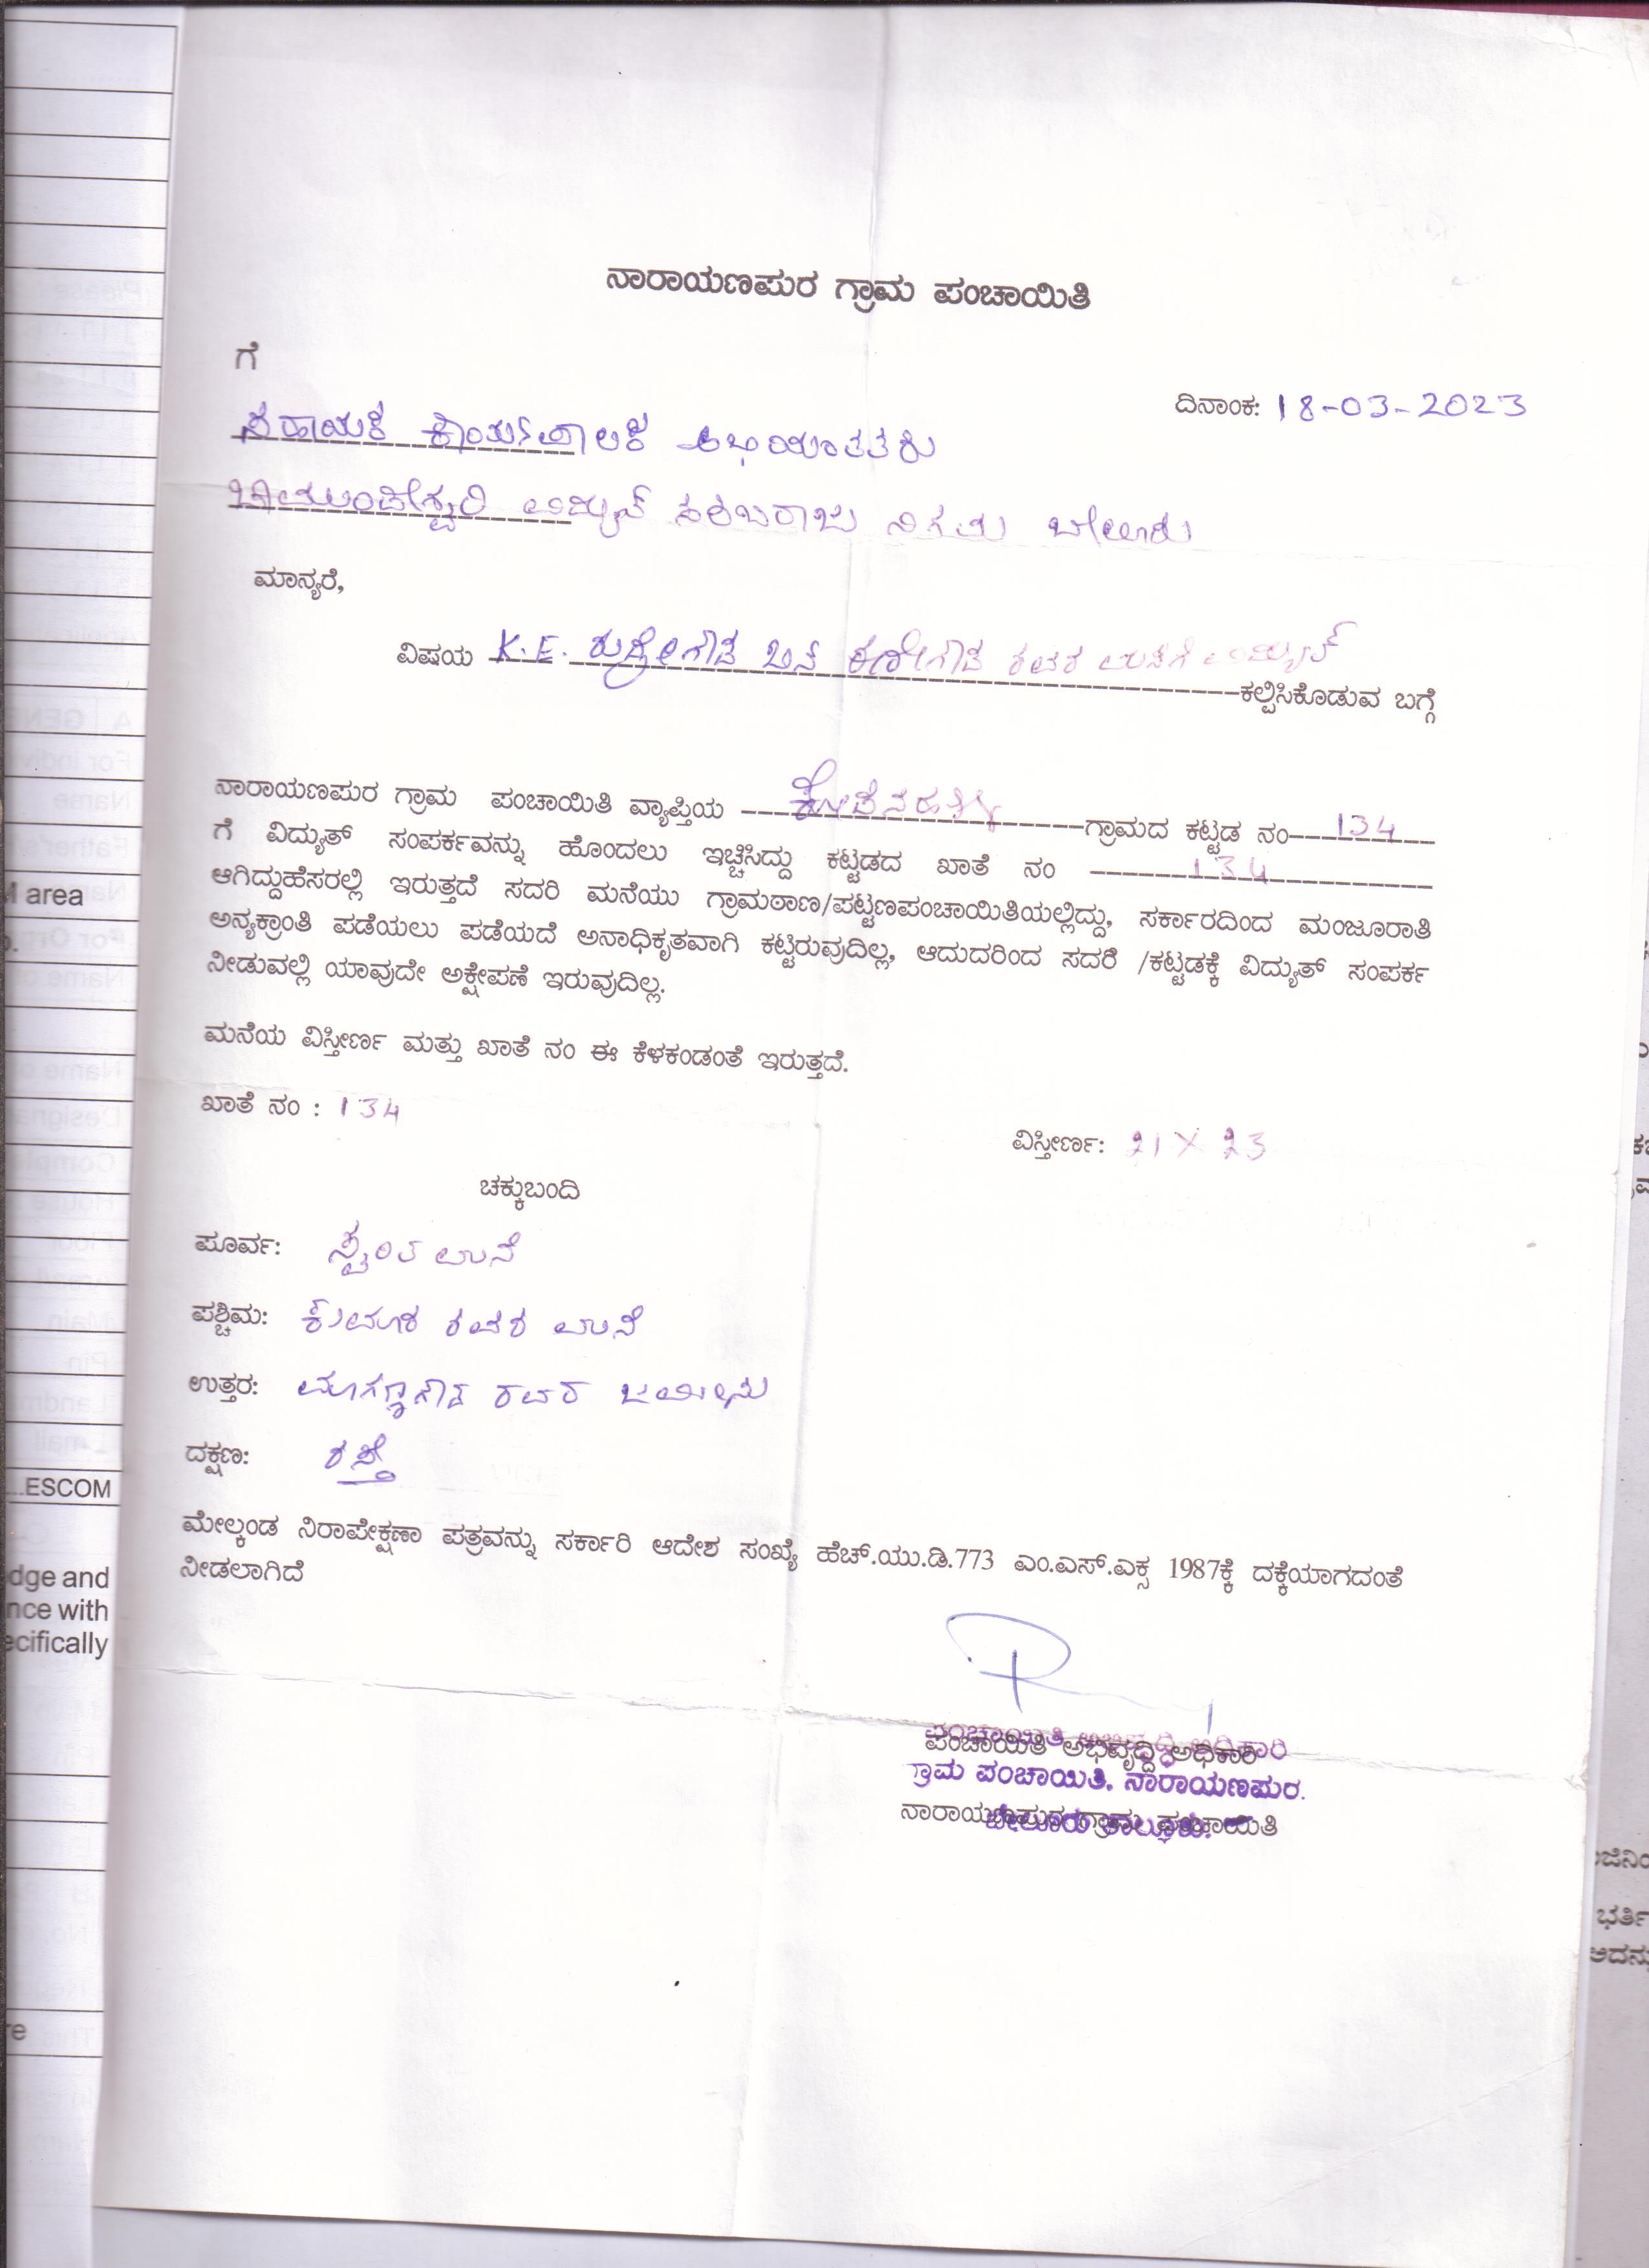 ನಾರಾಯಣಪುರ ಗ್ರಾಮ ಪಂಚಾಯಿತಿ
ಗೆ
ದಿನಾಂಕ: 18-03-2023
ಸಹಾಯಕ ಕಾರ್ಯಪಾಲಕ
ಚಾಮುಂಡೇಶ್ವರಿ ವಿದ್ಯುತ್ ಸರಬರಾಜು ನಿಗಮ ಬೇಲೂರು
ಮಾನ್ಯರೆ,
ವಿಷಯ K.E. ರುದ್ರೇಗೌಡ ಬಿನ್ ರವರ ಮನೆಗೆ ವಿದ್ಯುತ್
ಕಲ್ಪಿಸಿಕೊಡುವ ಬಗ್ಗೆ
ನಾರಾಯಣಪುರ ಗ್ರಾಮ ಪಂಚಾಯಿತಿ ವ್ಯಾಪ್ತಿಯ ಗ್ರಾಮದ ಕಟ್ಟಡ ನಂ 134
ಗೆ ವಿದ್ಯುತ್ ಸಂಪರ್ಕವನ್ನು ಹೊಂದಲು ಇಚ್ಚಿಸಿದ್ದು ಕಟ್ಟಡದ ಖಾತೆ ನಂ 134
ಆಗಿದ್ದುಹೆಸರಲ್ಲಿ ಇರುತ್ತದೆ ಸದರಿ ಮನೆಯು ಗ್ರಾಮಠಾಣ/ಪಟ್ಟಣಪಂಚಾಯಿತಿಯಲ್ಲಿದ್ದು, ಸರ್ಕಾರದಿಂದ ಮಂಜೂರಾತಿ
ಅನ್ಯಕ್ರಾಂತಿ ಪಡೆಯಲು ಪಡೆಯದೆ ಅನಾಧಿಕೃತವಾಗಿ ಕಟ್ಟಿರುವುದಿಲ್ಲ, ಆದುದರಿಂದ ಸದರಿ /ಕಟ್ಟಡಕ್ಕೆ ವಿದ್ಯುತ್ ಸಂಪರ್ಕ
ನೀಡುವಲ್ಲಿ ಯಾವುದೇ ಅಕ್ಷೇಪಣೆ ಇರುವುದಿಲ್ಲ.
ಮನೆಯ ವಿಸ್ತೀರ್ಣ ಮತ್ತು ಖಾತೆ ನಂ ಈ ಕೆಳಕಂಡಂತೆ ಇರುತ್ತದೆ.
ಖಾತೆ ನಂ : 134
ವಿಸ್ತೀರ್ಣ: 21 X 23
ಚಕ್ಕುಬಂದಿ
ಪೂರ್ವ: ಸ್ವಂತ ಮನೆ
ಪಶ್ಚಿಮ: ಕುಮಾರ ರವರ ಮನೆ
ಉತ್ತರ: ರವರ ಜಮೀನು
ದಕ್ಷಣ: ರಸ್ತೆ
ಮೇಲ್ಕಂಡ ನಿರಾಪೇಕ್ಷಣಾ ಪತ್ರವನ್ನು ಸರ್ಕಾರಿ ಆದೇಶ ಸಂಖ್ಯೆ ಹೆಚ್.ಯು.ಡಿ.773 ಎಂ.ಎಸ್.ಎಕ್ಸ 1987ಕ್ಕೆ ದಕ್ಕೆಯಾಗದಂತೆ
ನೀಡಲಾಗಿದೆ
ಪಂಚಾಯಿತಿ ಅಭಿವೃದ್ದಿ ಅಧಿಕಾರಿ
ಗ್ರಾಮ ಪಂಚಾಯಿತಿ, ನಾರಾಯಣಪುರ.
ನಾರಾಯಣಪುರ ಗ್ರಾಮ ಪಂಚಾಯಿತಿ
ಬೇಲೂರು ತಾಲ್ಲೂಕು.
M area
...ESCOM